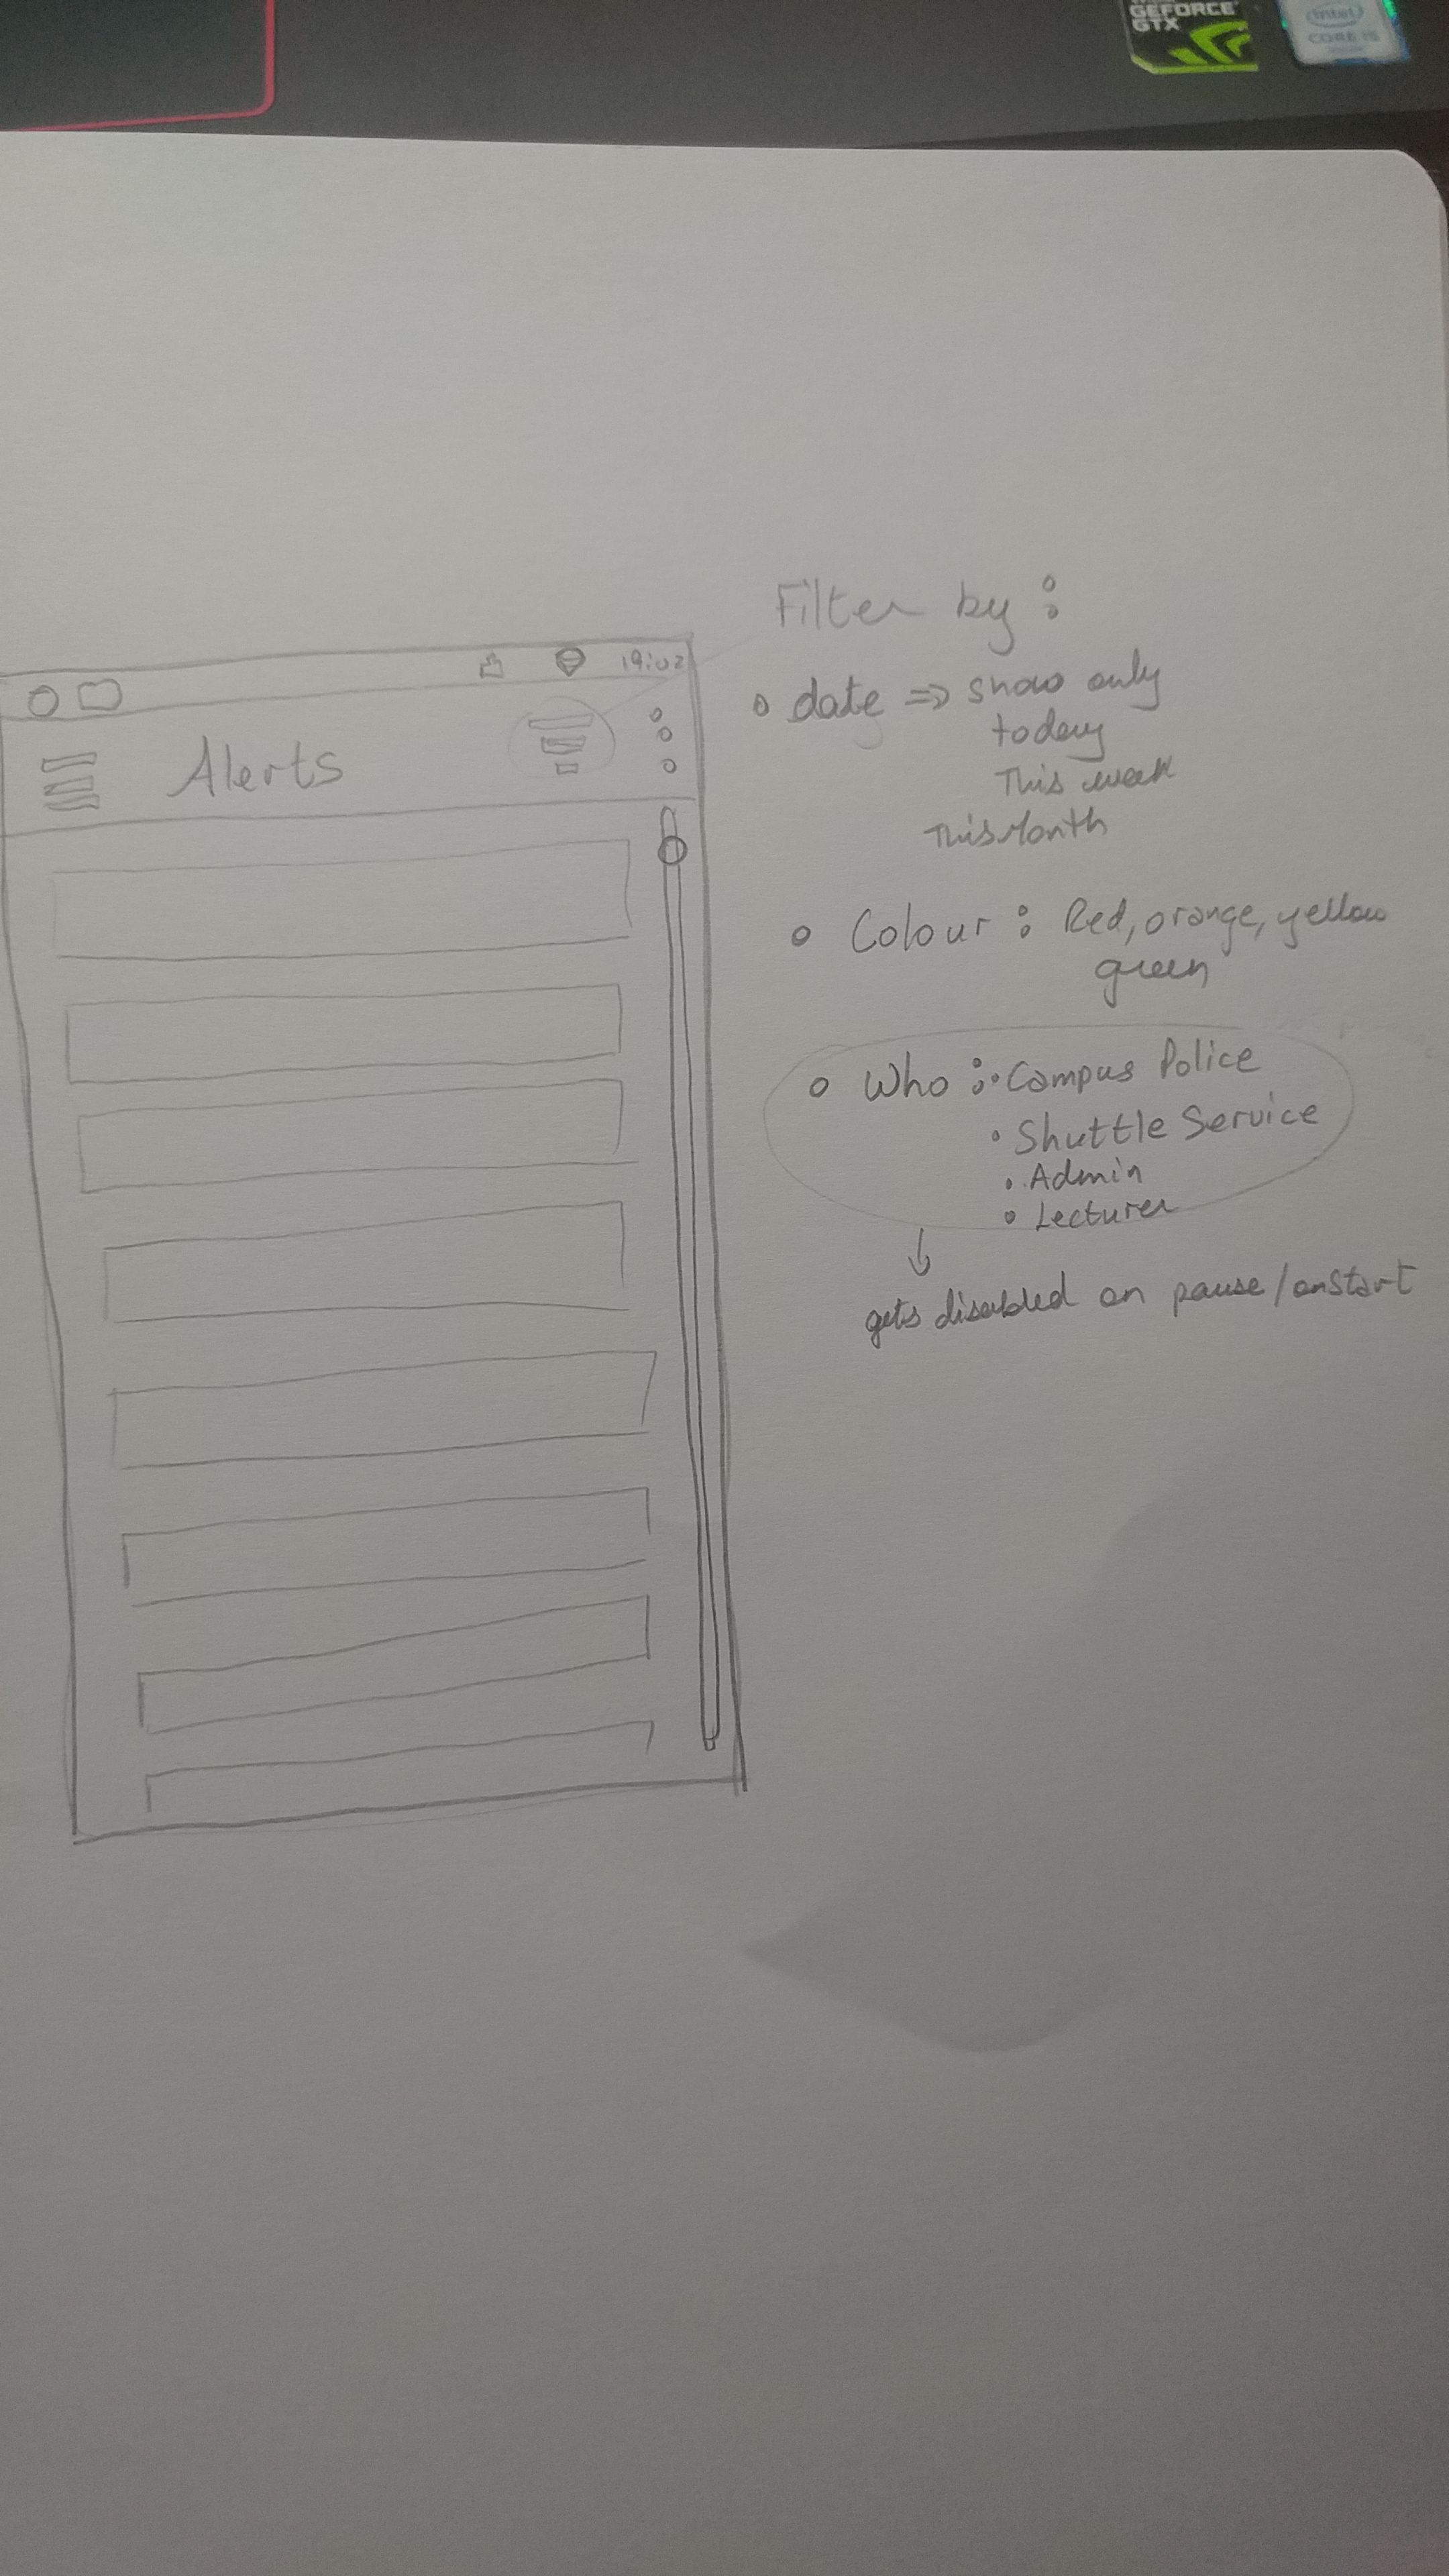 GEFORCE
GTX
intel
CORE i5
19:02
Alerts
Filter by :
date => show only
today
This week
This Month
Colour : Red, orange, yellow
green
Who : Campus Police
Shuttle Service
Admin
Lecturer
gets disabled on pause/onstart